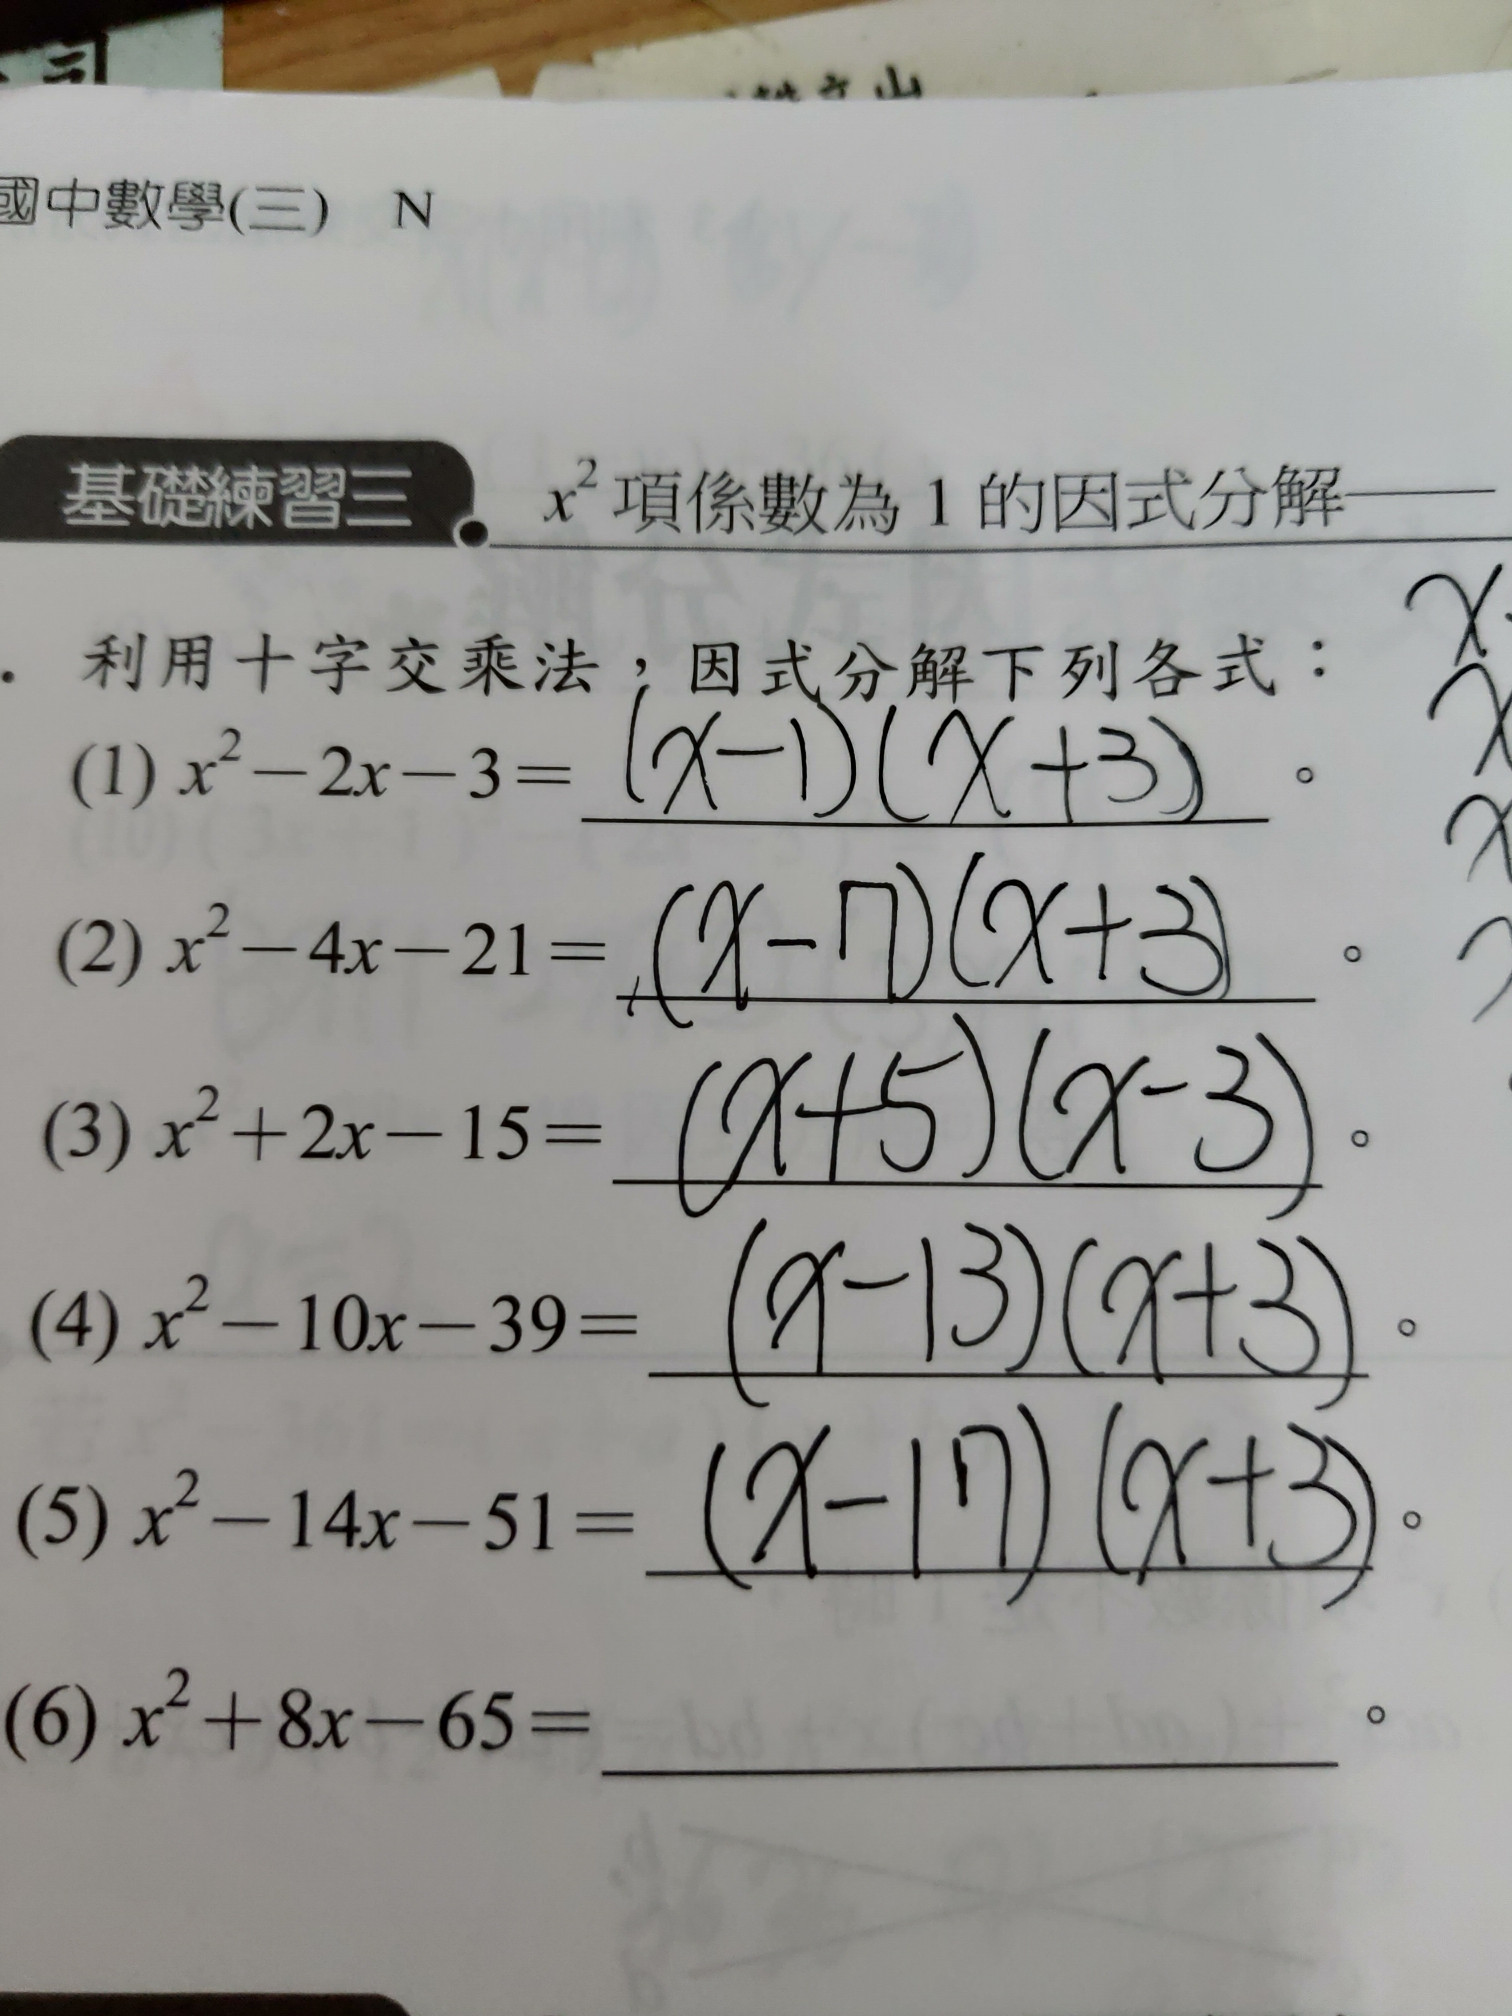 國中數學(三) N
基礎練習三 x²項係數為 1 的因式分解
. 利用十字交乘法，因式分解下列各式：
(1) x²－2x－3＝(x-1)(x+3)。
(2) x²－4x－21＝(x-7)(x+3)。
(3) x²＋2x－15＝(x+5)(x-3)。
(4) x²－10x－39＝(x-13)(x+3)。
(5) x²－14x－51＝(x-17)(x+3)。
(6) x²＋8x－65＝。